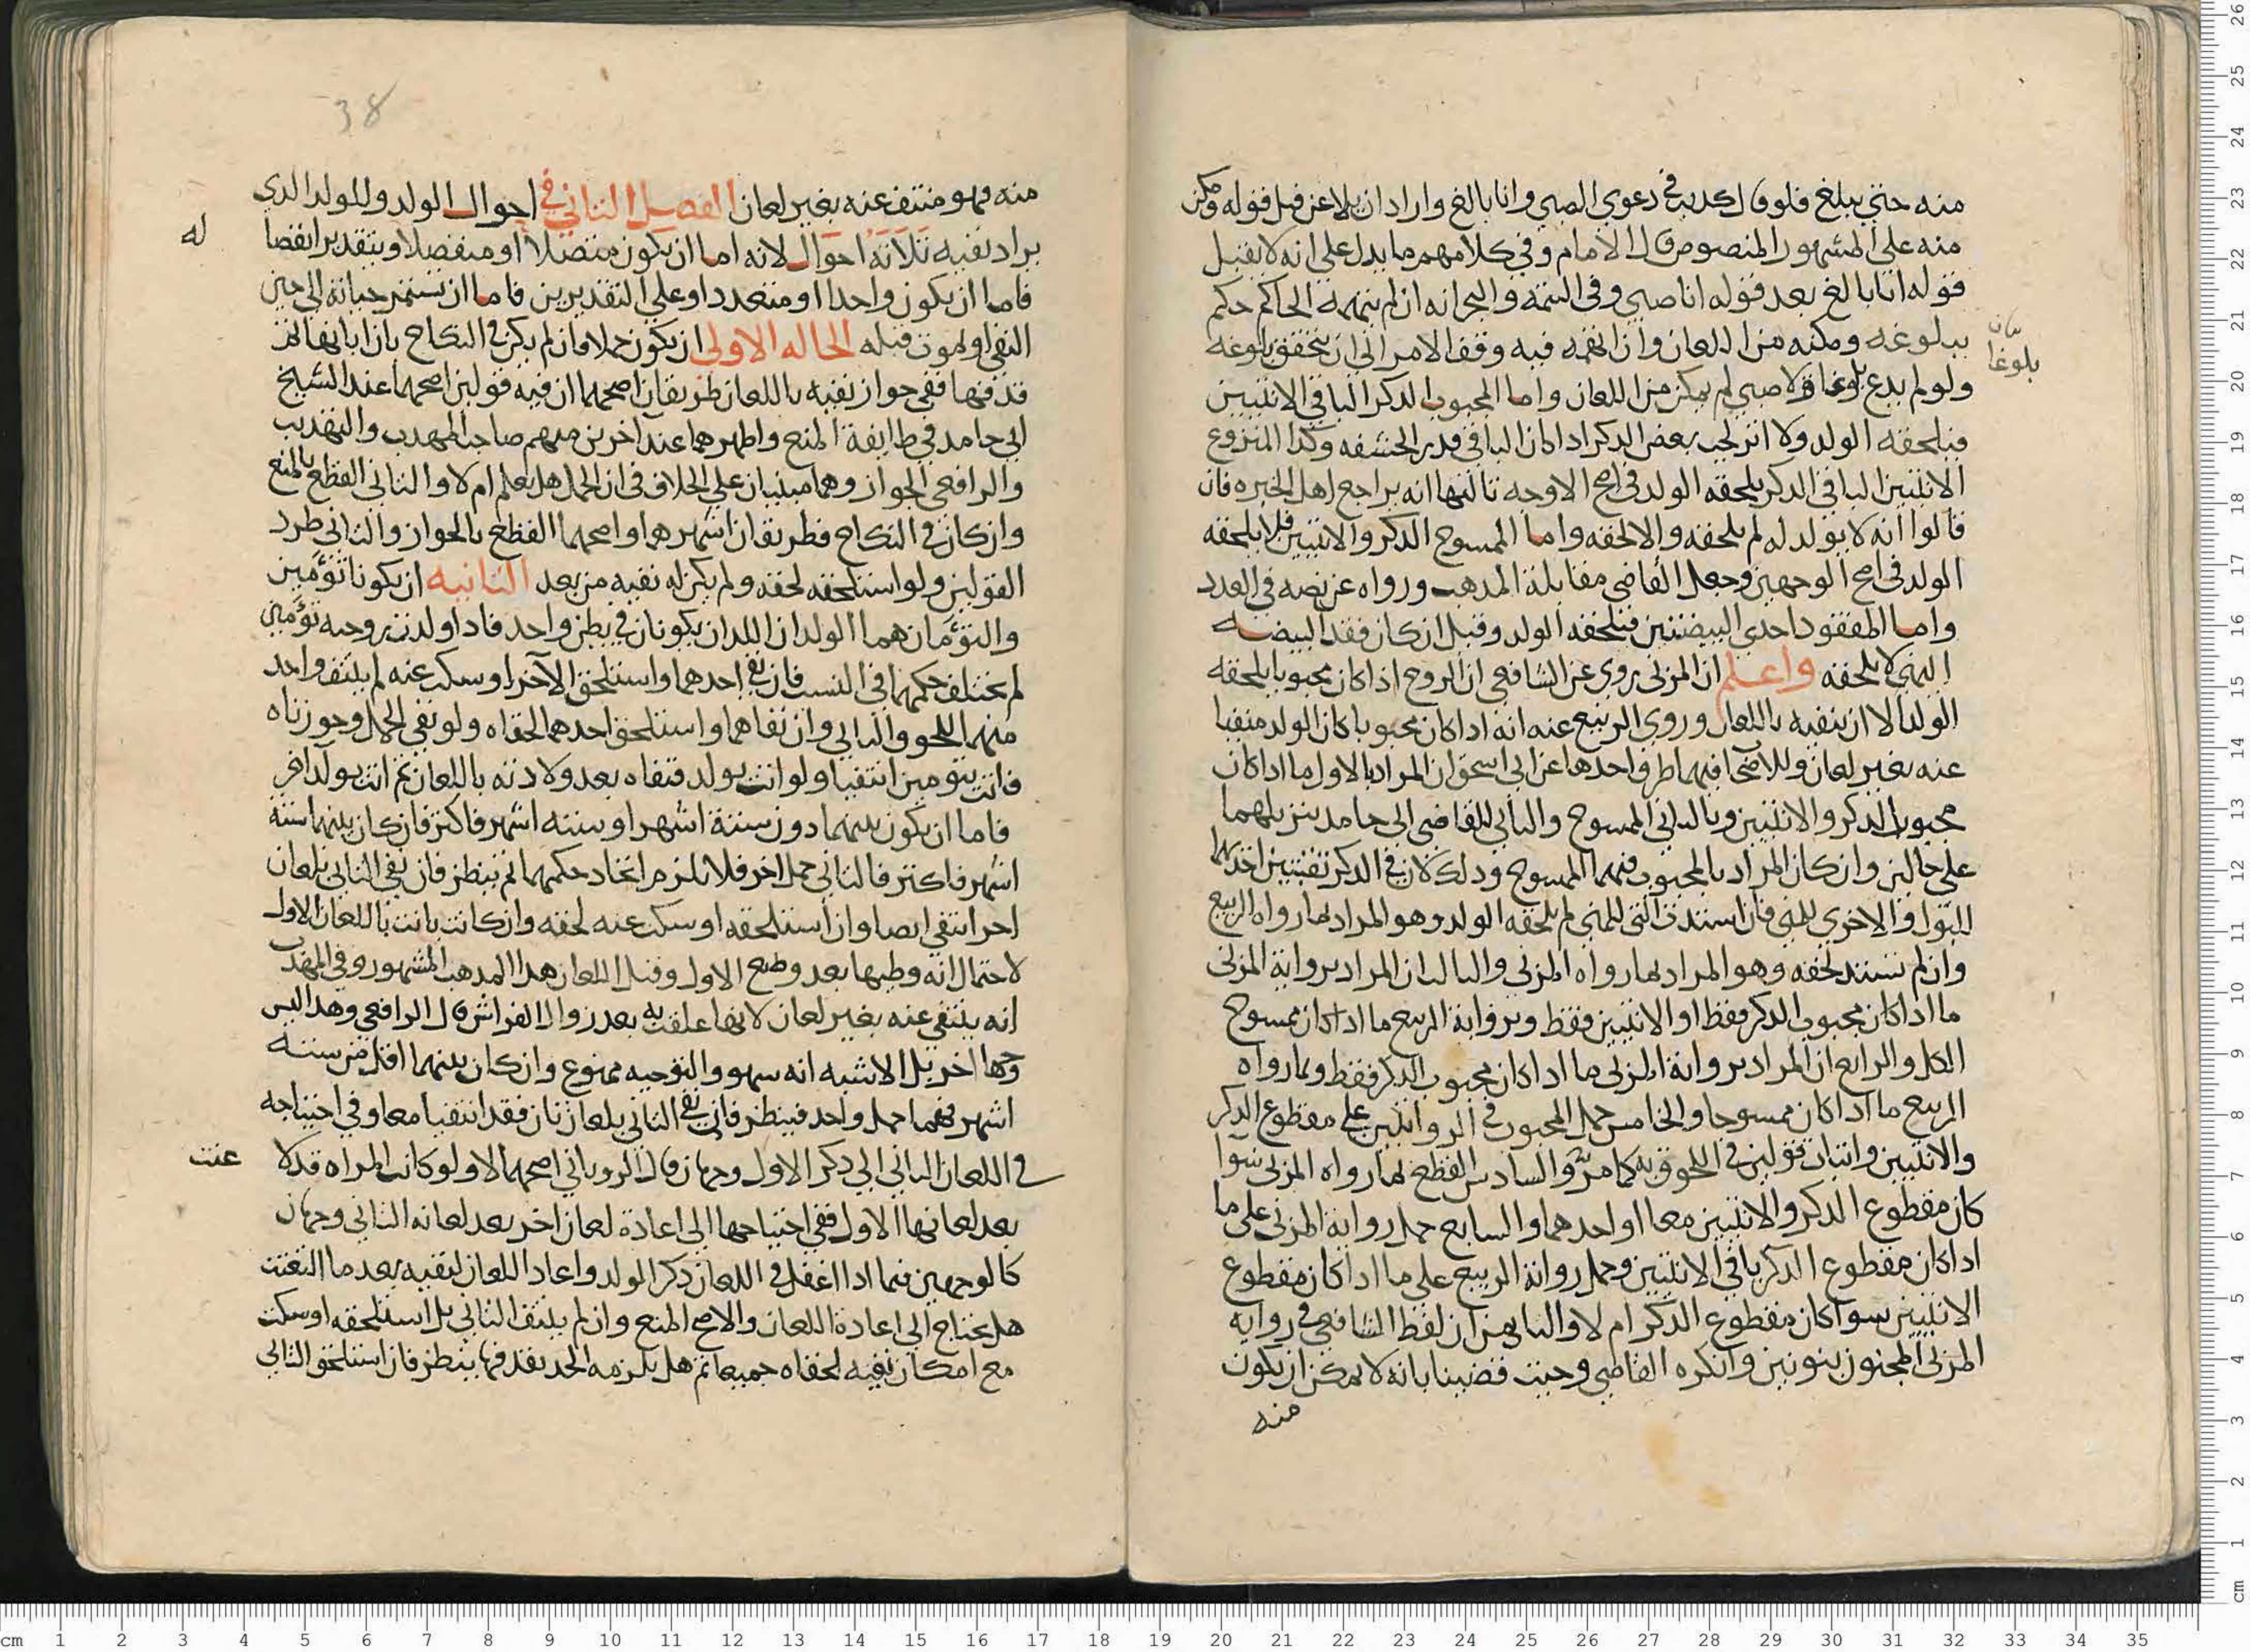 منه حتى يبلغ فلو قال كدبت في دعوى الصبي وانا بالغ واراد ان يلاعن قبل قوله ومكن
منه على المشهور المنصوص قال الامام وفي كلامهم ما يدل على انه لا يقبل
قوله انا بالغ بعد قوله انا صبي وفي التتمة والبحر انه ان لم يتهمة الحاكم حكم
ببلوغه ومكنه من اللعان وان اتهمه فيه وقف الامر الى ان يتحقق بلوغه
بلوغا
ولو لم يدع بلوغا وقال انا صبي لم يمكن من اللعان واما المجبوب الدكر الباقي الانثيين
فيلحقه الولد ولا اثر لجب بعض الدكر ادا كان الباقي قدر الحشفه وكدا المنزوع
الانثيين الباقي الدكر يلحقه الولد في اصح الاوجه ثالثها انه يراجع اهل الخبره فان
قالوا انه لا يولد له لم يلحقه والا لحقه واما الممسوح الدكر والانثيين فلا يلحقه
الولد في اصح الوجهين وجعل القاضي مقابلة المدهب ورواه عن نصه في العدد
واما المفقود احدى البيضتين فيلحقه الولد وقيل ان كان فقد البيضه
اليمنى لا يلحقه واعلم ان المزني روى عن الشافعي ان الزوج اذا كان مجبوبا يلحقه
الولد الا ان ينفيه باللعان وروى الربيع عنه انه ادا كان مجبوبا كان الولد منفيا
عنه بغير لعان وللاصحاب فيهما طرق احدها عن ابي اسحق ان المراد بالاول ما ادا كان
مجبوب الدكر والانثيين وبالثاني الممسوح والثاني للقاضي ابي حامد تنزيلهما
على حالين وان كان المراد بالمجبوب فيهما الممسوح ودلك لان في الدكر ثقبتين احداهما
للبول والاخرى للمني فان استدت التي للمني لم يلحقه الولد وهو المراد بما رواه الربيع
وان لم تستد لحقه وهو المراد بما رواه المزني والثالث ان المراد برواية المزني
ما ادا كان مجبوب الدكر فقط او الانثيين فقط وبرواية الربيع ما ادا كان ممسوح
الكل والرابع ان المراد برواية المزني ما ادا كان مجبوب الدكر فقط وبما رواه
الربيع ما ادا كان ممسوحا والخامس حمل المجبوب في الروايتين على مقطوع الدكر
والانثيين واثبات قولين في اللحوق به كما مر والسادس القطع بما رواه المزني سوا
كان مقطوع الدكر والانثيين معا او احدهما والسابع حمل رواية المزني على ما
ادا كان مقطوع الدكر باقي الانثيين وحمل رواية الربيع على ما ادا كان مقطوع
الانثيين سوا كان مقطوع الدكر ام لا والثامن ان لفظ الشافعي في رواية
المزني المجنون بنونين وانكره القاضي وحيث قضينا بانه لا يمكن ان يكون
منه
38
منه فهو منتف عنه بغير لعان الفصل الثاني في احوال الولد وللولد الدي
له
يراد نفيه ثلاثة احوال لانه اما ان يكون متصلا او منفصلا وبتقدير انفصا
فاما ان يكون واحدا او متعددا وعلى التقديرين فاما ان تستمر حياته الى حين
النفي او يموت قبله الحاله الاولى ان يكون حملا فان لم يكن في النكاح بان ابانها ثم
قدفها ففي جواز نفيه باللعان طريقان اصحهما ان فيه قولين اصحهما عند الشيخ
ابي حامد في طايفة المنع واظهرهما عند اخرين منهم صاحب المهدب والتهديب
والرافعي الجواز وهما مبنيان على الخلاف في ان الحمل هل يعلم ام لا والثاني القطع بالمنع
وان كان في النكاح فطريقان اشهرهما واصحهما القطع بالجواز والثاني طرد
القولين ولو استلحقه لحقه ولم يكن له نفيه من بعد الثانيه ان يكونا توءمين
والتوءمان هما الولدان اللدان يكونان في بطن واحد فادا ولدت زوجته توءمين
لم يختلف حكمهما في النسب فان نفى احدهما واستلحق الآخر او سكت عنه لم ينتف واحد
منهما اللحوق والثاني وان نفاهما واستلحق احدهما لحقاه ولو نفى الحمل وجوزناه
فاتت بتومين انتفيا ولو اتت بولد فنفاه بعد ولادته باللعان ثم اتت بولد اخر
فاما ان يكون بينهما دون ستة اشهر او سته اشهر فاكثر فان كان بينهما ستة
اشهر فاكثر فالثاني حمل اخر فلا يلزم اتحاد حكمهما ثم ينظر فان نفى الثاني بلعان
اخر انتفى ايضا وان استلحقه او سكت عنه لحقه وان كانت بانت باللعان الاول
لاحتمال انه وطيها بعد وضع الاول وقبل اللعان هدا المدهب المشهور وفي المهدب
انه ينتفي عنه بغير لعان لانها علقت به بعد زوال الفراش قال الرافعي وهدا ليس
وجها اخر بل الاشبه انه سهو والتوجيه ممنوع وان كان بينهما اقل من ستة
اشهر فهما حمل واحد فينظر فان نفى الثاني بلعان ثان فقد انتفيا معا وفي احتياجه
في اللعان الثاني الى دكر الاول وجهان قال الروياني اصحهما لا ولو كانت المراه قد لا
عنت
بعد لعانها الاول ففي احتياجها الى اعادة لعان اخر بعد لعانه الثاني وجهان
كالوجهين فيما ادا اغفل في اللعان دكر الولد واعاد اللعان لنفيه بعد ما التعنت
هل تحتاج الى اعادة اللعان والاصح المنع وان لم ينتف الثاني بل استلحقه او سكت
مع امكان نفيه لحقاه جميعا ثم هل يلزمه الحد بقدفها ينظر فان استلحق الثاني